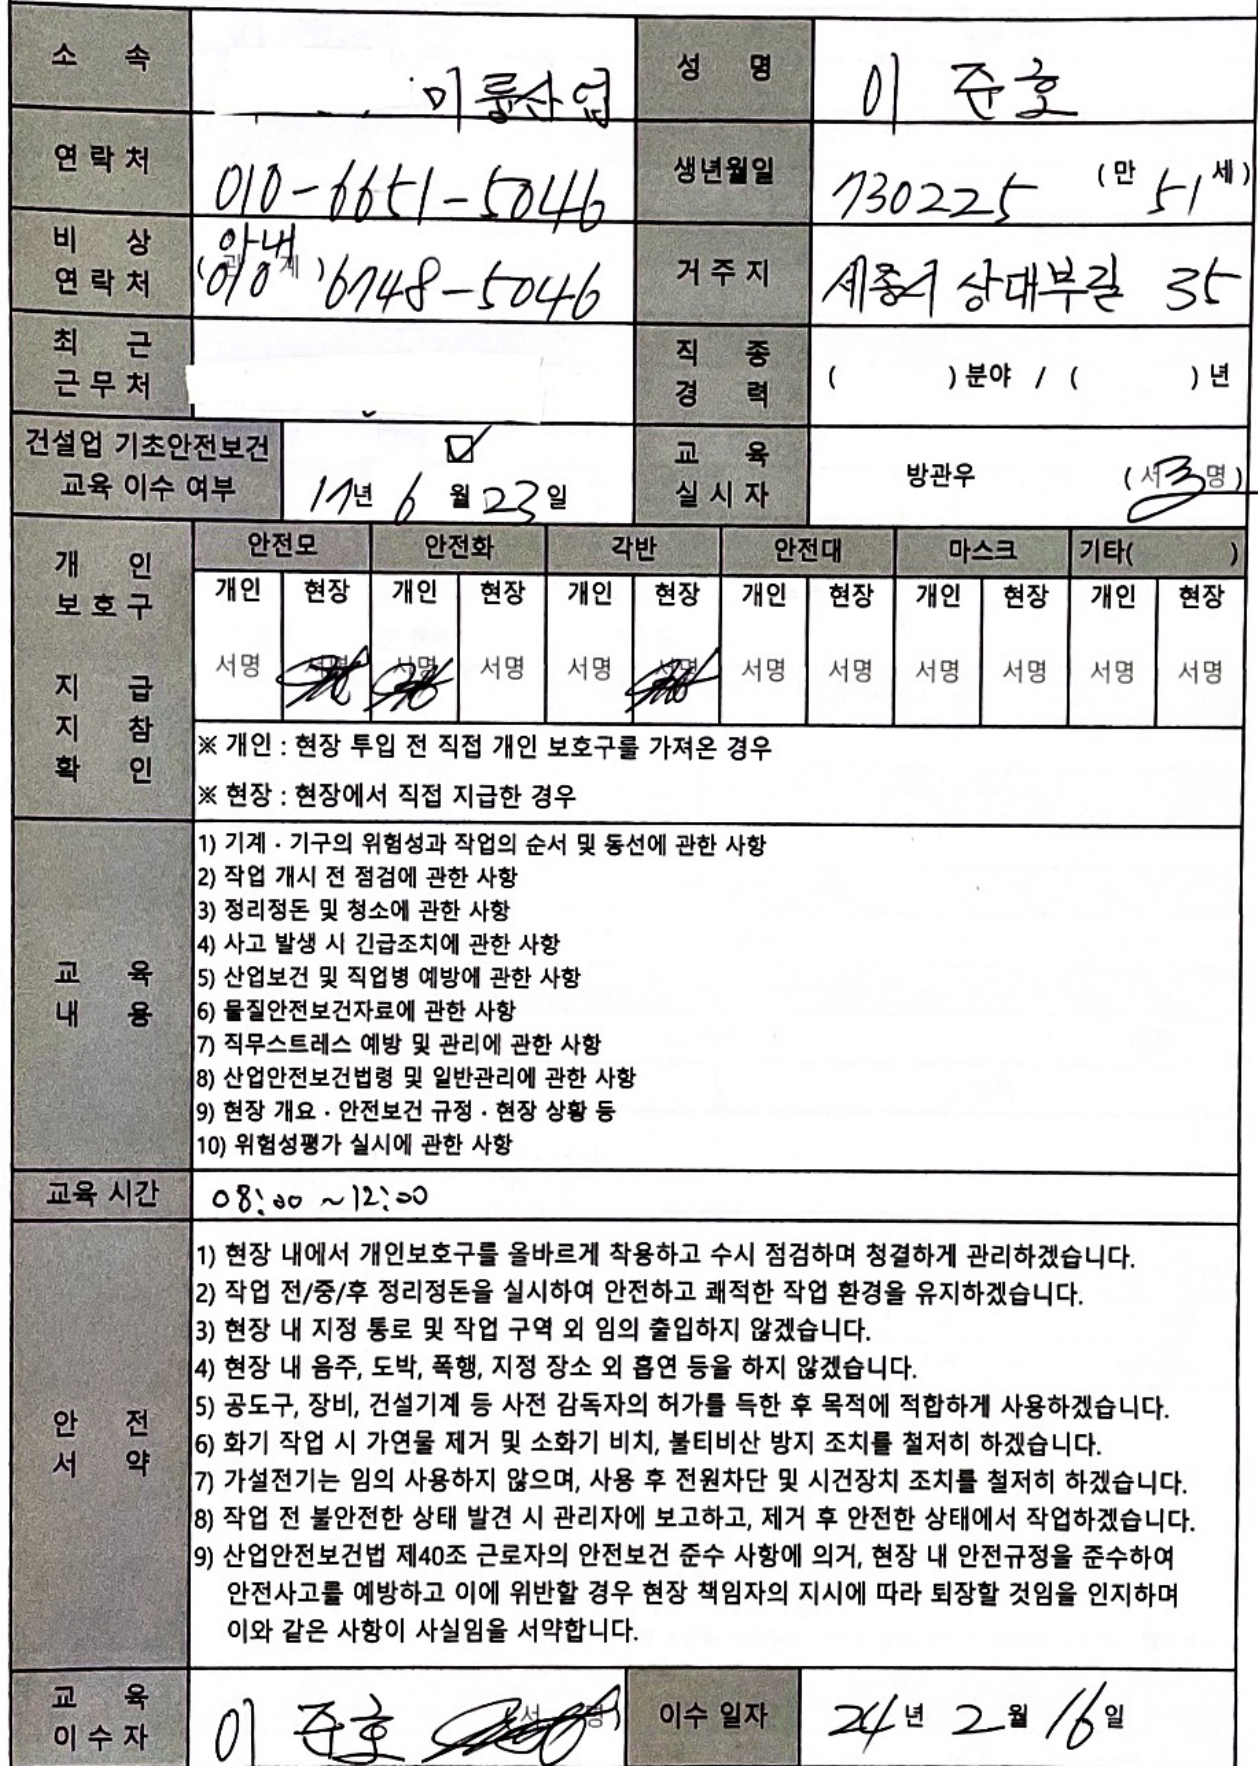 소 속 미륭산업 성 명 이 준호
연락처 010-6651-5046 생년월일 730225 (만 51 세)
비 상 연락처 (관 계) 아내 010 6748-5046 거주지 세종시 상대부길 35
최 근 근무처 직 종 경 력 ( ) 분야 / ( ) 년
건설업 기초안전보건 교육 이수 여부 ☑ 17년 6 월 23일 교 육 실시자 방관우 (서명)
개 인 보호구 지 급 지 참 확 인
안전모 안전화 각반 안전대 마스크 기타( )
개인 현장 개인 현장 개인 현장 개인 현장 개인 현장 개인 현장
서명 서명 서명 서명 서명 서명 서명 서명 서명 서명 서명 서명
※ 개인 : 현장 투입 전 직접 개인 보호구를 가져온 경우
※ 현장 : 현장에서 직접 지급한 경우
교 육 내 용
1) 기계 · 기구의 위험성과 작업의 순서 및 동선에 관한 사항
2) 작업 개시 전 점검에 관한 사항
3) 정리정돈 및 청소에 관한 사항
4) 사고 발생 시 긴급조치에 관한 사항
5) 산업보건 및 직업병 예방에 관한 사항
6) 물질안전보건자료에 관한 사항
7) 직무스트레스 예방 및 관리에 관한 사항
8) 산업안전보건법령 및 일반관리에 관한 사항
9) 현장 개요 · 안전보건 규정 · 현장 상황 등
10) 위험성평가 실시에 관한 사항
교육 시간 08:00 ~12:00
안 전 서 약
1) 현장 내에서 개인보호구를 올바르게 착용하고 수시 점검하며 청결하게 관리하겠습니다.
2) 작업 전/중/후 정리정돈을 실시하여 안전하고 쾌적한 작업 환경을 유지하겠습니다.
3) 현장 내 지정 통로 및 작업 구역 외 임의 출입하지 않겠습니다.
4) 현장 내 음주, 도박, 폭행, 지정 장소 외 흡연 등을 하지 않겠습니다.
5) 공도구, 장비, 건설기계 등 사전 감독자의 허가를 득한 후 목적에 적합하게 사용하겠습니다.
6) 화기 작업 시 가연물 제거 및 소화기 비치, 불티비산 방지 조치를 철저히 하겠습니다.
7) 가설전기는 임의 사용하지 않으며, 사용 후 전원차단 및 시건장치 조치를 철저히 하겠습니다.
8) 작업 전 불안전한 상태 발견 시 관리자에 보고하고, 제거 후 안전한 상태에서 작업하겠습니다.
9) 산업안전보건법 제40조 근로자의 안전보건 준수 사항에 의거, 현장 내 안전규정을 준수하여
안전사고를 예방하고 이에 위반할 경우 현장 책임자의 지시에 따라 퇴장할 것임을 인지하며
이와 같은 사항이 사실임을 서약합니다.
교 육 이수자 이 준호 (서 명) 이수 일자 24 년 2 월 16 일